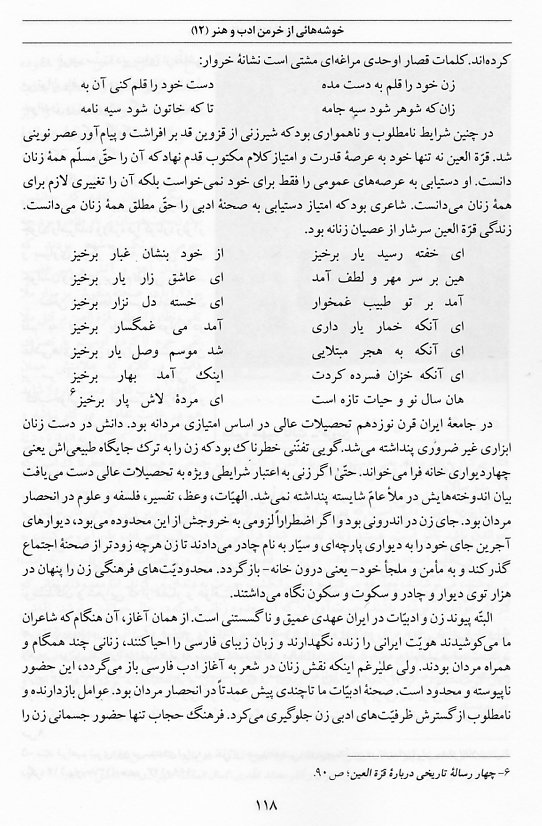 خوشه‌هائی از خرمن ادب و هنر (۱۲)
کرده‌اند. کلمات قصار اوحدی مراغه‌ای مشتی است نشانهٔ خروار:
زن خود را قلم به دست مده دست خود را قلم کنی آن به
زان که شوهر شود سیه جامه تا که خاتون شود سیه نامه
در چنین شرایط نامطلوب و ناهمواری بود که شیرزنی از قزوین قد بر افراشت و پیام‌آور عصر نوینی
شد. قرّة العین نه تنها خود به عرصهٔ قدرت و امتیاز کلام مکتوب قدم نهاد که آن را حقّ مسلّم همهٔ زنان
دانست. او دستیابی به عرصه‌های عمومی را فقط برای خود نمی‌خواست بلکه آن را تغییری لازم برای
همهٔ زنان می‌دانست. شاعری بود که امتیاز دستیابی به صحنهٔ ادبی را حقّ مطلق همهٔ زنان می‌دانست.
زندگی قرّة العین سرشار از عصیان زنانه بود.
ای خفته رسید یار برخیز از خود بنشان غبار برخیز
هین بر سر مهر و لطف آمد ای عاشق زار یار برخیز
آمد بر تو طبیب غمخوار ای خسته دل نزار برخیز
ای آنکه خمار یار داری آمد می غمگسار برخیز
ای آنکه به هجر مبتلایی شد موسم وصل یار برخیز
ای آنکه خزان فسرده کردت اینک آمد بهار برخیز
هان سال نو و حیات تازه است ای مردهٔ لاش پار برخیز۶
در جامعهٔ ایران قرن نوزدهم تحصیلات عالی در اساس امتیازی مردانه بود. دانش در دست زنان
ابزاری غیر ضروری پنداشته می‌شد. گویی تفنّنی خطرناک بود که زن را به ترک جایگاه طبیعی‌اش یعنی
چهاردیواری خانه فرا می‌خواند. حتّیٰ اگر زنی به اعتبار شرایطی ویژه به تحصیلات عالی دست می‌یافت
بیان اندوخته‌هایش در ملأ عامّ شایسته پنداشته نمی‌شد. الهیّات، وعظ، تفسیر، فلسفه و علوم در انحصار
مردان بود. جای زن در اندرونی بود و اگر اضطراراً لزومی به خروجش از این محدوده می‌بود، دیوارهای
آجرین جای خود را به دیواری پارچه‌ای و سیّار به نام چادر می‌دادند تا زن هرچه زودتر از صحنهٔ اجتماع
گذر کند و به مأمن و ملجأ خود- یعنی درون خانه- باز گردد. محدودیّت‌های فرهنگی زن را پنهان در
هزار توی دیوار و چادر و سکوت و سکون نگاه می‌داشتند.
البتّه پیوند زن و ادبیّات در ایران عهدی عمیق و ناگسستنی است. از همان آغاز، آن هنگام که شاعران
ما می‌کوشیدند هویّت ایرانی را زنده نگهدارند و زبان زیبای فارسی را احیا کنند، زنانی چند همگام و
همراه مردان بودند. ولی علیٰرغم اینکه نقش زنان در شعر به آغاز ادب فارسی باز می‌گردد، این حضور
ناپیوسته و محدود است. صحنهٔ ادبیّات ما تا چندی پیش عمدتاً در انحصار مردان بود. عوامل بازدارنده و
نامطلوب از گسترش ظرفیّت‌های ادبی زن جلوگیری می‌کرد. فرهنگ حجاب تنها حضور جسمانی زن را
۶- چهار رسالهٔ تاریخی دربارهٔ قرّة العین؛ ص ۹۰.
۱۱۸